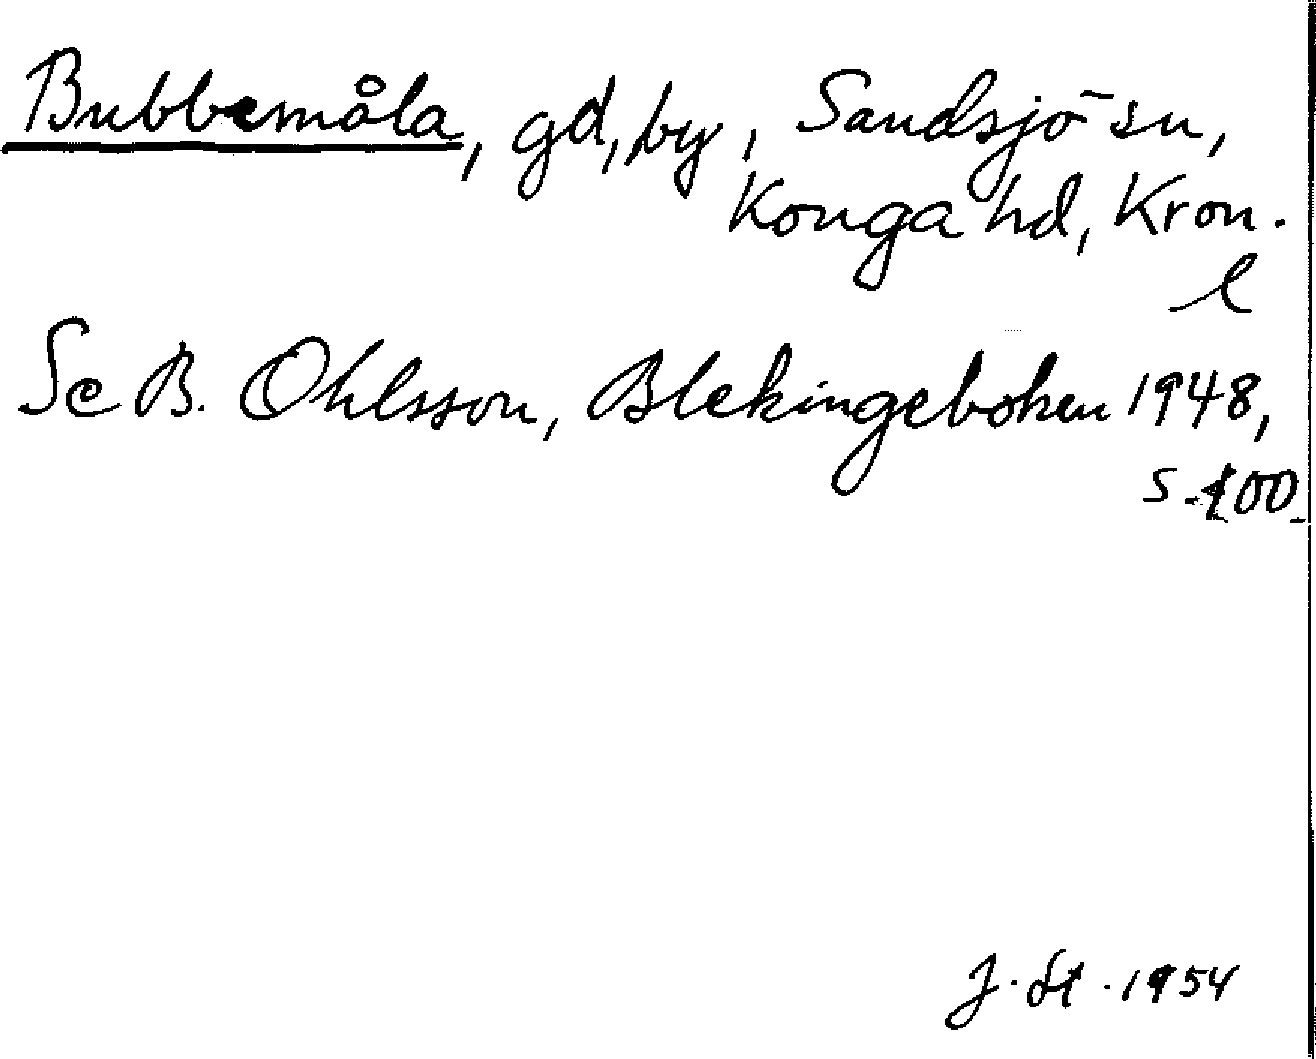 Bubbemåla, gd, by, Sandsjö sn,
Konga hd, Kron.
l
Se B. Ohlsson, Blekingeboken 1948,
s. 100.
J. St. 1954